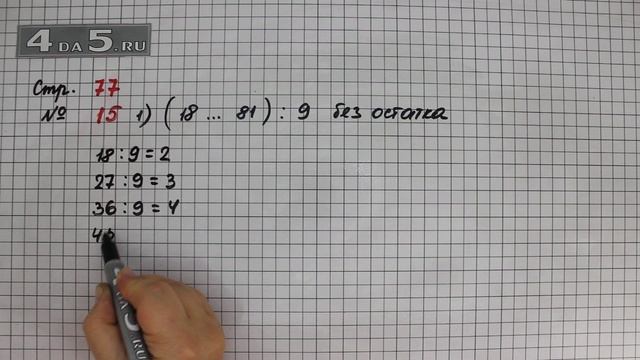 4 DA 5.RU
Стр. 77
№ 15 1) (18 ... 81) : 9 без остатка
18 : 9 = 2
27 : 9 = 3
36 : 9 = 4